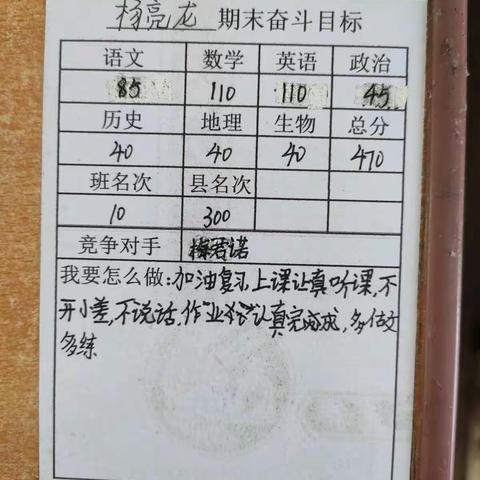 杨亮龙 期末奋斗目标
语文 数学 英语 政治
85 110 110 45
历史 地理 生物 总分
40 40 40 470
班名次 县名次
10 300
竞争对手 君诺
我要怎么做:加油复习,上课让真听课,不
开小差,不说话,作业认真完成,多做文
多练